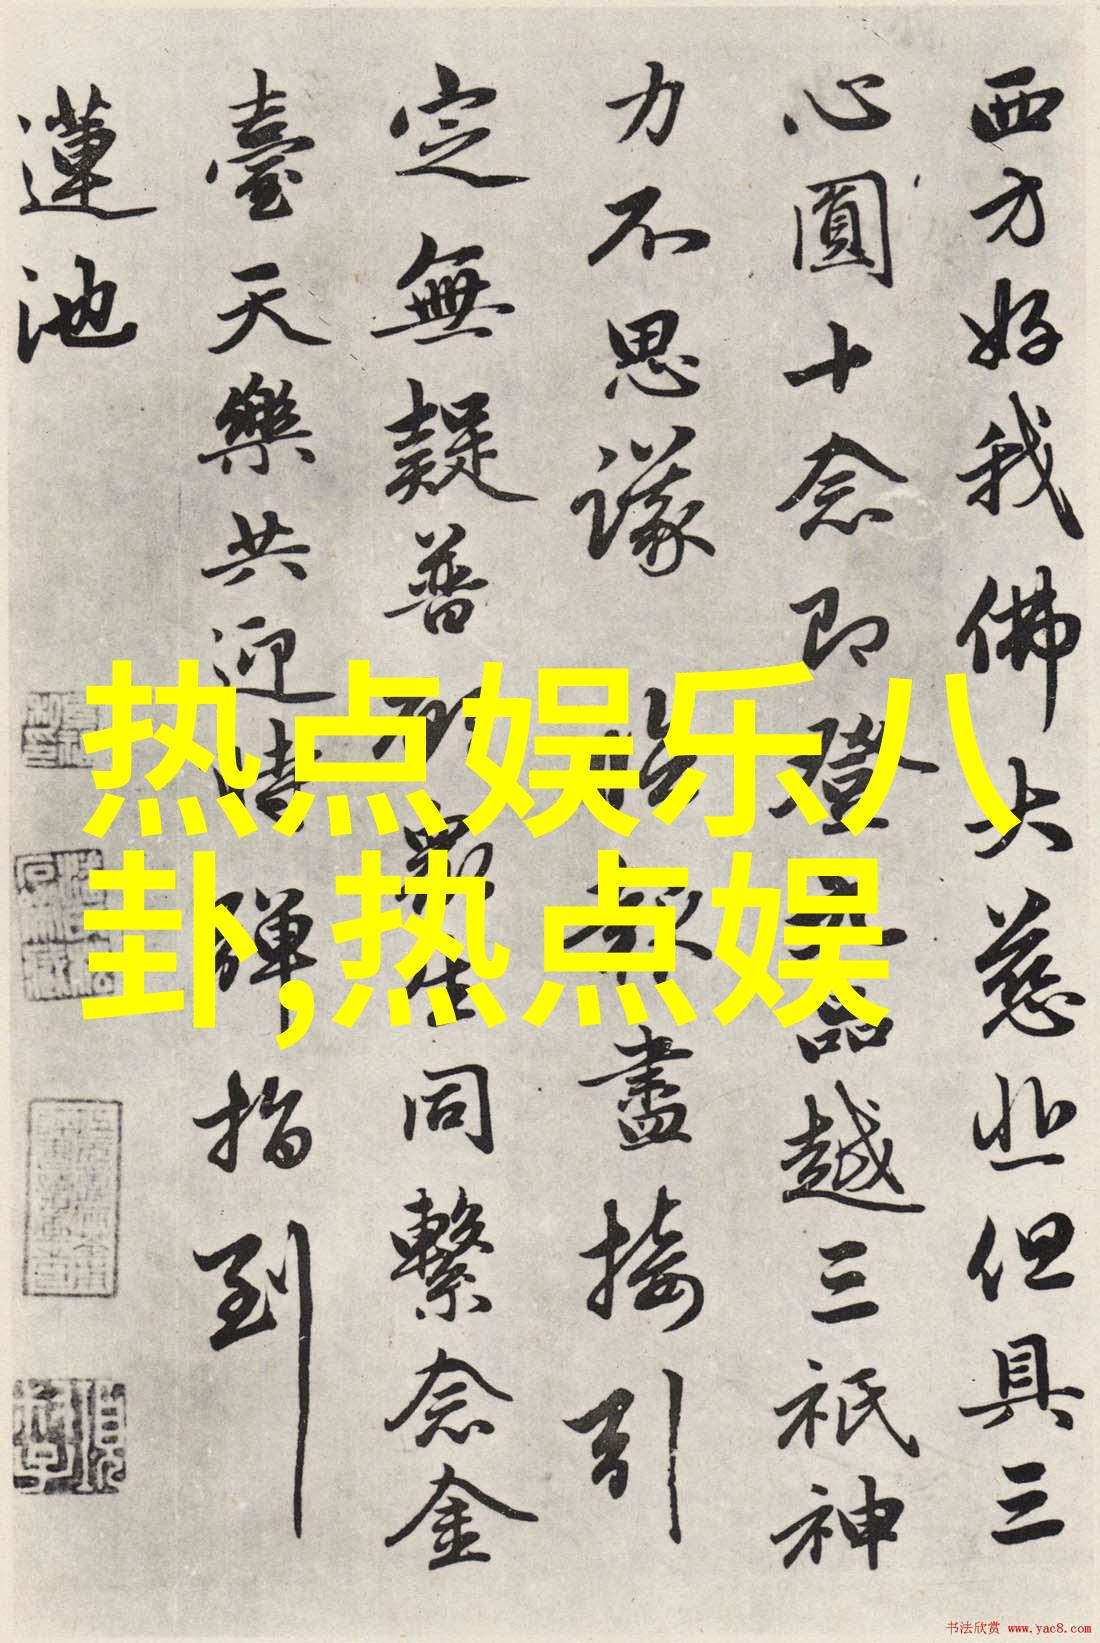 西方好我佛大慈悲但具三
心圓十念即登品越三祇神
力不思議報盡接引
定無疑普眾生同繫念金
臺天樂共迎時彈指到
蓮池
热点娱乐八
卦,热点娱
书法欣赏 www.yac8.com